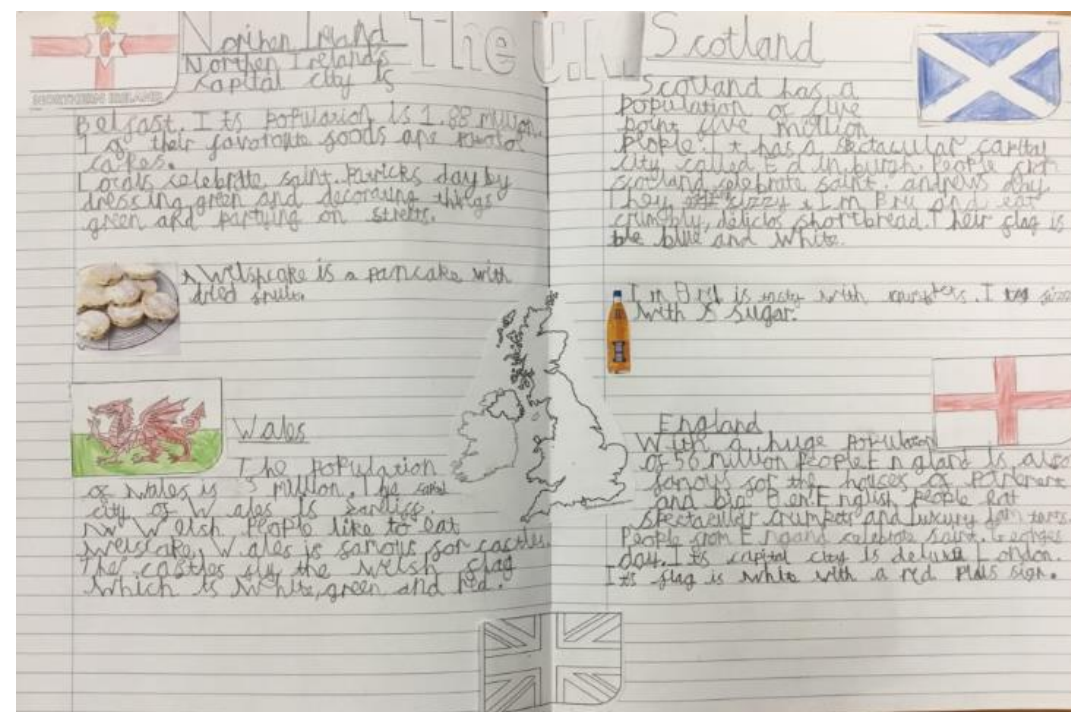 The U.K
Northen Ireland
Northen Irelands
capital city is
Belfast. Its population is 1.88 million.
1 of their favatoite foods are potatot
cakes.
Locals celebrate saint. Patricks day by
dressing green and decorating things
green and partying on streets.
NORTHERN IRELAND
A welshcake is a pancake with
dried fruit.
Wales
The population
of Wales is 3 million. The capital
city of Wales is cardiff.
Welsh People like to eat
welscake. Wales is famous for castles.
The castles fly the welsh flag
which is white, green and red.
Scotland
Scotland has a
population of five
point five million
people. It has a spectacular capital
city called Edinburgh. People from
scotland celebrate saint. andrews day.
They fizzy Irn Bru and eat
crumbly, delicios shortbread. Their flag is
ble blue and white.
Irn Bru is tasty with
with sugar.
England
With a huge population
of 56 million people England is also
famous for the houses of
and big Ben. English people eat
spectacular crumpets and luxury jam tarts.
People from Engand celebrate saint. Georges
day. Its capital city is deluxe London.
Its flag is white with a red plus sign.